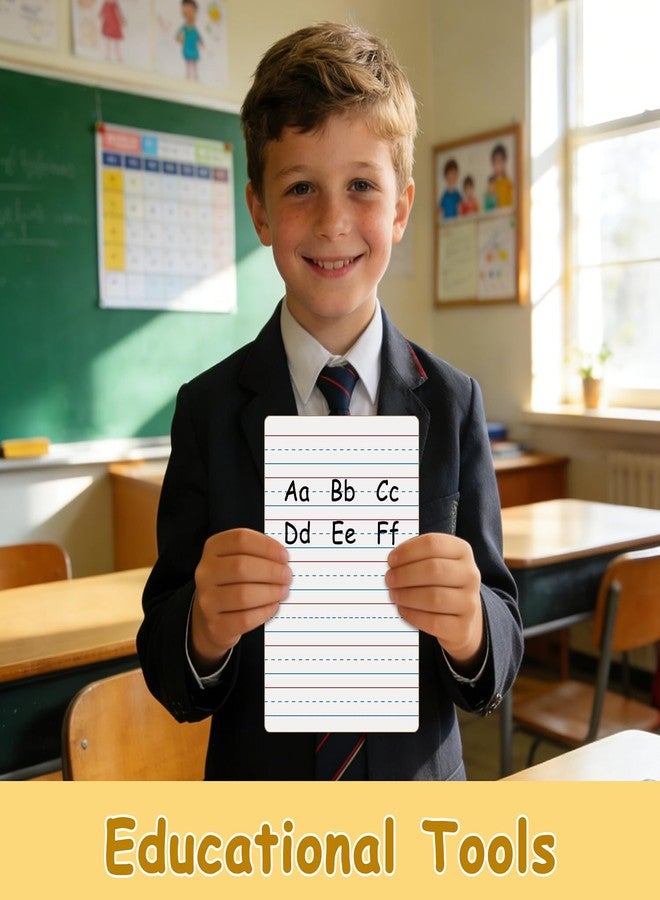 Aa Bb Cc
Dd Ee Ff
Educational Tools